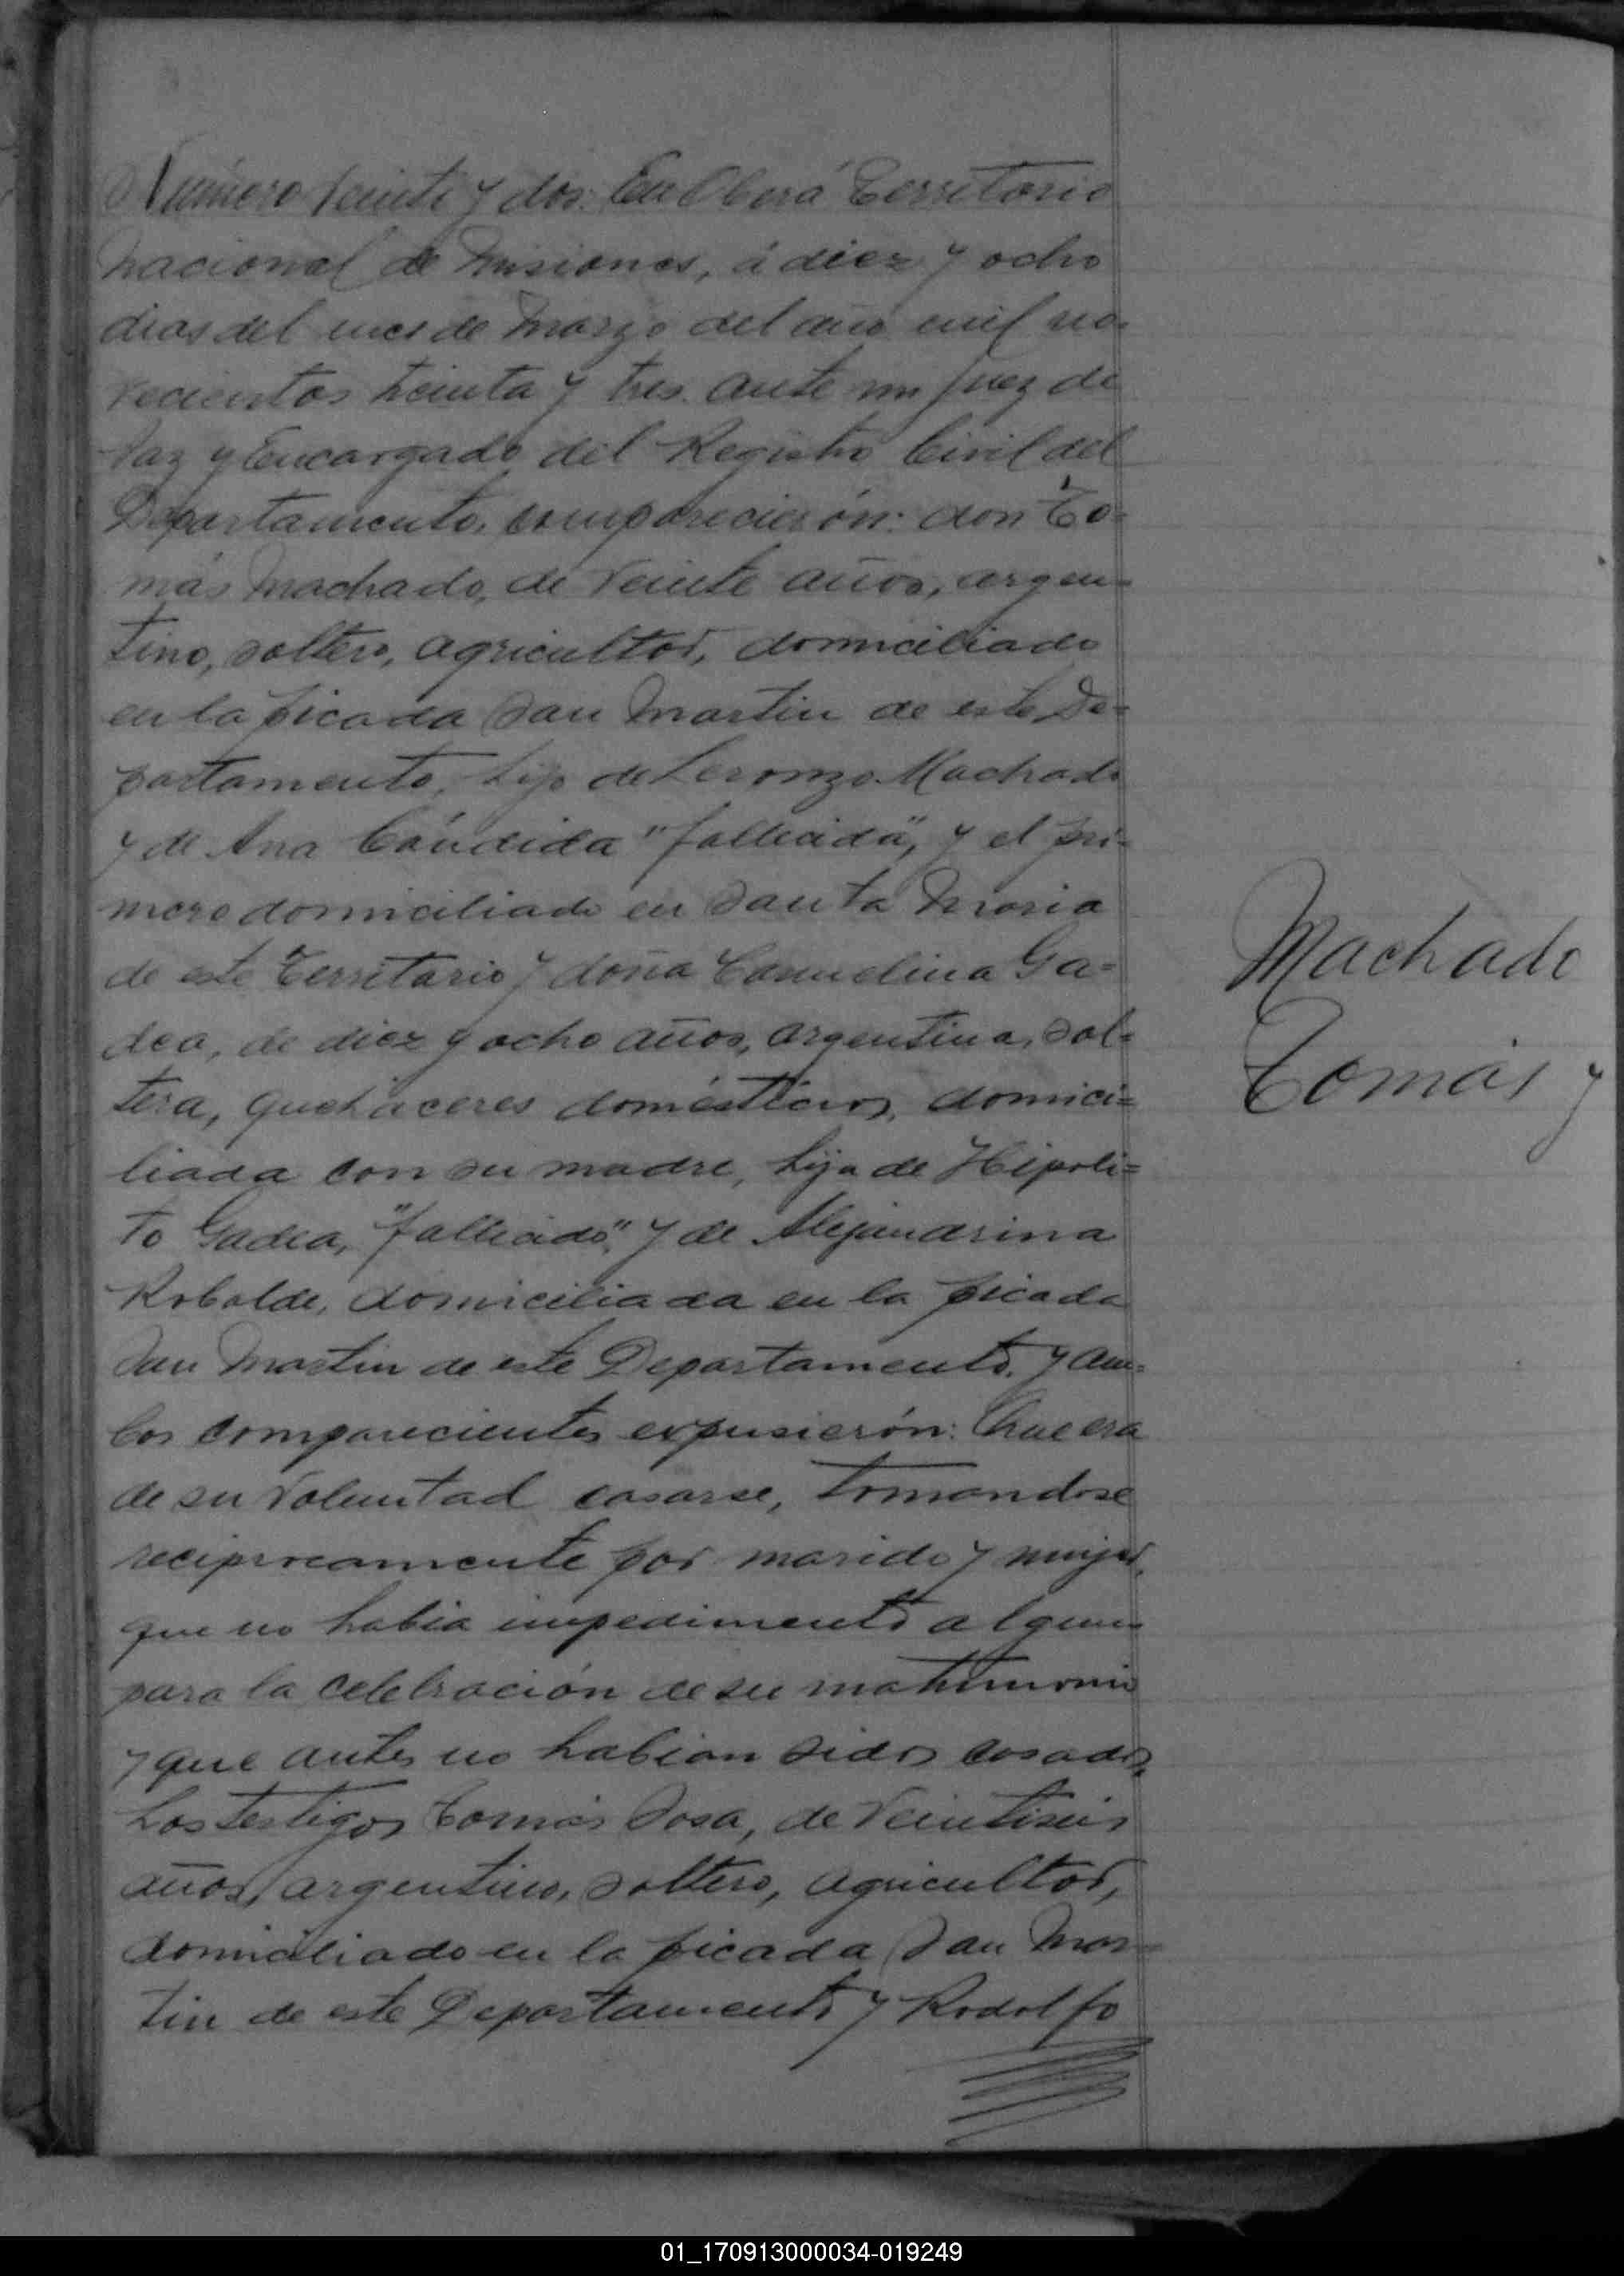 Número veinte y dos: En Oberá Territorio
Nacional de Misiones, á diez y ocho
dias del mes de Marzo del año mil no-
vecientos treinta y tres. Ante mi Juez de
Paz y Encargado del Registro Civil del
Departamento, comparecierón: don To=
más Machado, de veinte años, argen=
tino, soltero, agricultor, domiciliado
en la picada San Martin de este De=
partamento, hijo de Leronzo Machado
y de Ana Cándida "fallecida", y el pri=
mero domiciliado en Santa Maria
de este Territorio y doña Carmelina Ga=
dea, de diez y ocho años, argentina, sol=
tera, quehaceres domésticos, domici=
liada con su madre, hija de Hipoli=
to Gadea, "fallecido", y de Alejandrina
Robalde, domiciliada en la picada
San Martin de este Departamento. Y am=
bos comparecientes expusierón: Que era
de su voluntad casarse, tomandose
reciprocamente por marido y mujer,
que no habia impedimento alguno
para la celebración de su matrimonio
y que antes no habian sidos casados,
Los testigos Tomás Sosa, de veintiseis
años, argentino, soltero, agricultor,
domiciliado en la picada San Mar=
tin de este Departamento y Rodolfo
Machado
Tomás y
01_170913000034-019249